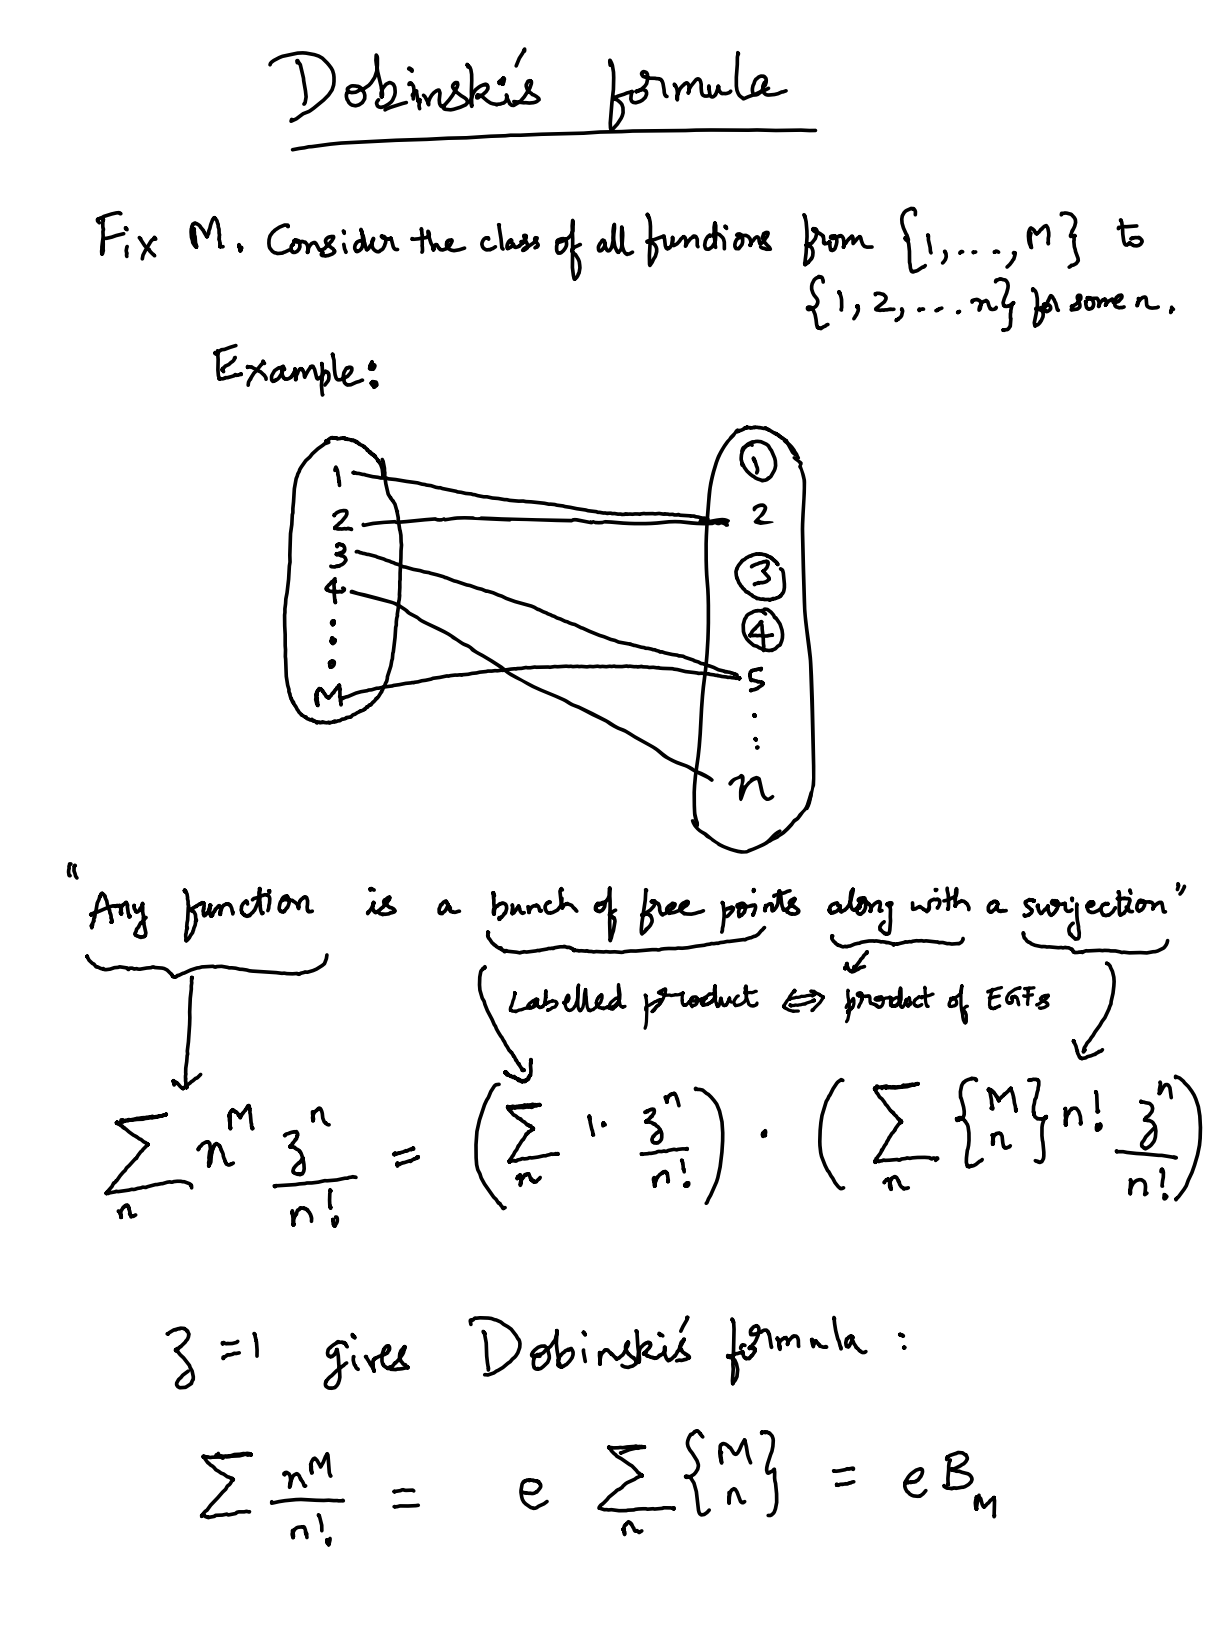 Dobinski's formula
Fix M. Consider the class of all functions from {1,...,M} to
{1, 2, ... n} for some n.
Example:
1
2
3
4
⋮
M
1
2
3
4
5
⋮
n
"Any function is a bunch of free points along with a surjection"
Labelled product ⇔ product of EGFs
∑_n n^M z^n/n! = (∑_n 1. z^n/n!) . (∑_n {M n} n! z^n/n!)
z=1 gives Dobinski's formula :
∑ n^M/n! = e ∑_n {M n} = e B_M